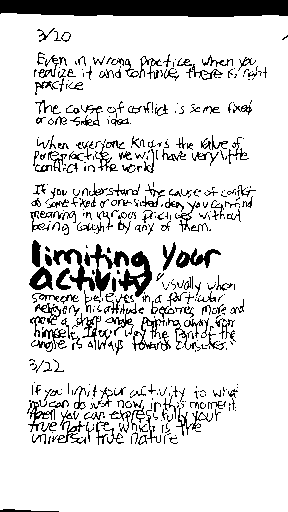 3/20
Even in wrong practice, when you
realize it and continue, there is right
practice
The cause of conflict is some fixed
or one-sided idea.
When everyone knows the value of
pure practice, we will have very little
conflict in the world
If you understand the cause of conflict
as some fixed or one-sided idea, you can find
meaning in various practices without
being caught by any of them.
limiting your
activity "usually when
someone believes in a particular
religion, his attitude becomes more and
more a sharp angle, pointing away from
himself. In our way the point of the
angle is always towards ourselves."
3/22
If you limit your activity to what
you can do just now, in this moment
then you can express fully your
true nature, which is the
universal true nature